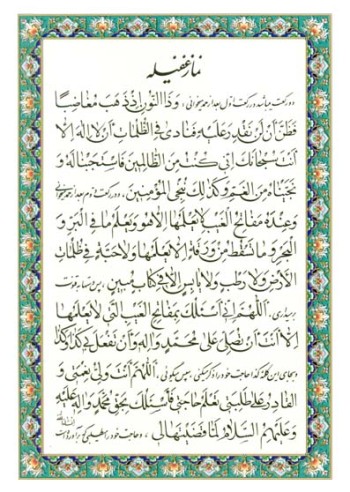 نماز غفیله
دو رکعت میباشد در رکعت اول بعد از حمد بخوانی ، وَذَا النُّونِ اِذْ ذَهَبَ مُغَاضِبًا
فَظَنَّ اَنْ لَنْ نَقْدِرَ عَلَيْهِ فَنَادىٰ فِى الظُّلُمَاتِ اَنْ لَا اِلٰهَ اِلَّا
اَنْتَ سُبْحَانَكَ اِنّى كُنْتُ مِنَ الظَّالِمينَ فَاسْتَجَبْنَا لَهُ وَ
نَجَّيْنَاهُ مِنَ الْغَمِّ وَكَذٰلِكَ نُنْجِى الْمُؤْمِنينَ ، در رکعت دوم بعد از حمد بخوانی
وَعِنْدَهُ مَفَاتِحُ الْغَيْبِ لَا يَعْلَمُهَا اِلَّا هُوَ وَيَعْلَمُ مَا فِى الْبَرِّ وَ
الْبَحْرِ وَ مَا تَسْقُطُ مِنْ وَرَقَةٍ اِلَّا يَعْلَمُهَا وَلَا حَبَّةٍ فى ظُلُمَاتِ
الْاَرْضِ وَلَا رَطْبٍ وَلَا يَابِسٍ اِلَّا فى كِتَابٍ مُبينٍ ، پس دستها بقنوت
برمیداری ، اَللّٰهُمَّ اِنّى اَسْئَلُكَ بِمَفَاتِحِ الْغَيْبِ الَّتى لَا يَعْلَمُهَا
اِلَّا اَنْتَ اَنْ تُصَلِّىَ عَلىٰ مُحَمَّدٍ وَالِهِ وَاَنْ تَفْعَلَ بى كَذَا وَكَذَا
و بجای این کلمه کذا حاجت خود را ذکر میکنی ، پس میگوئی ، اَللّٰهُمَّ اَنْتَ وَلِىُّ نِعْمَتى وَ
الْقَادِرُ عَلىٰ طَلِبَتى تَعْلَمُ حَاجَتى فَاَسْئَلُكَ بِحَقِّ مُحَمَّدٍ وَالِهِ عَلَيْهِ
وَ عَلَيْهِمُ السَّلَامُ لَمَّا قَضَيْتَهَا لى ، و حاجت خود را میطلبی که برآورده است